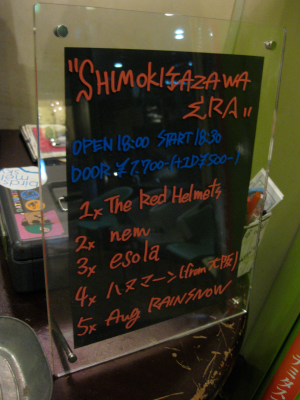 "SHIMOKITAZAWA
ERA"
OPEN 18:00 START 18:30
DOOR ¥7,700-(+1D¥500-)
1x The Red Helmets
2x nem
3x esola
4x ハヌマーン(from大阪)
5x Aug RAINSNOW